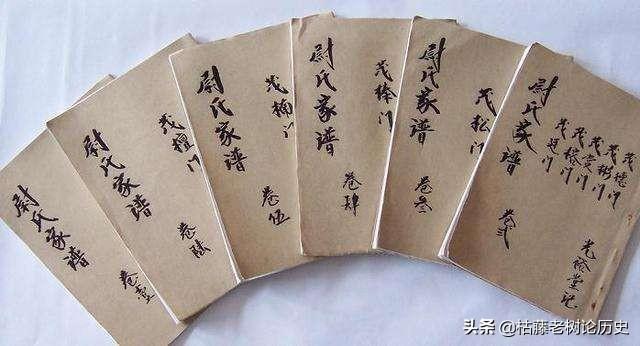 尉氏家谱
卷壹
尉氏家谱
茂檀门
卷陆
尉氏家谱
茂楠门
卷伍
尉氏家谱
茂门
卷肆
尉氏家谱
茂松门
卷叁
尉氏家谱
卷贰
茂德门
茂彬门
茂门
茂门
茂门
光裕堂记
头条 @枯藤老树论历史